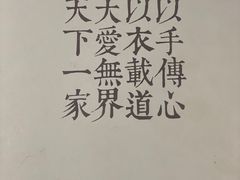 以手傳心
以衣載道
大愛無界
天下一家